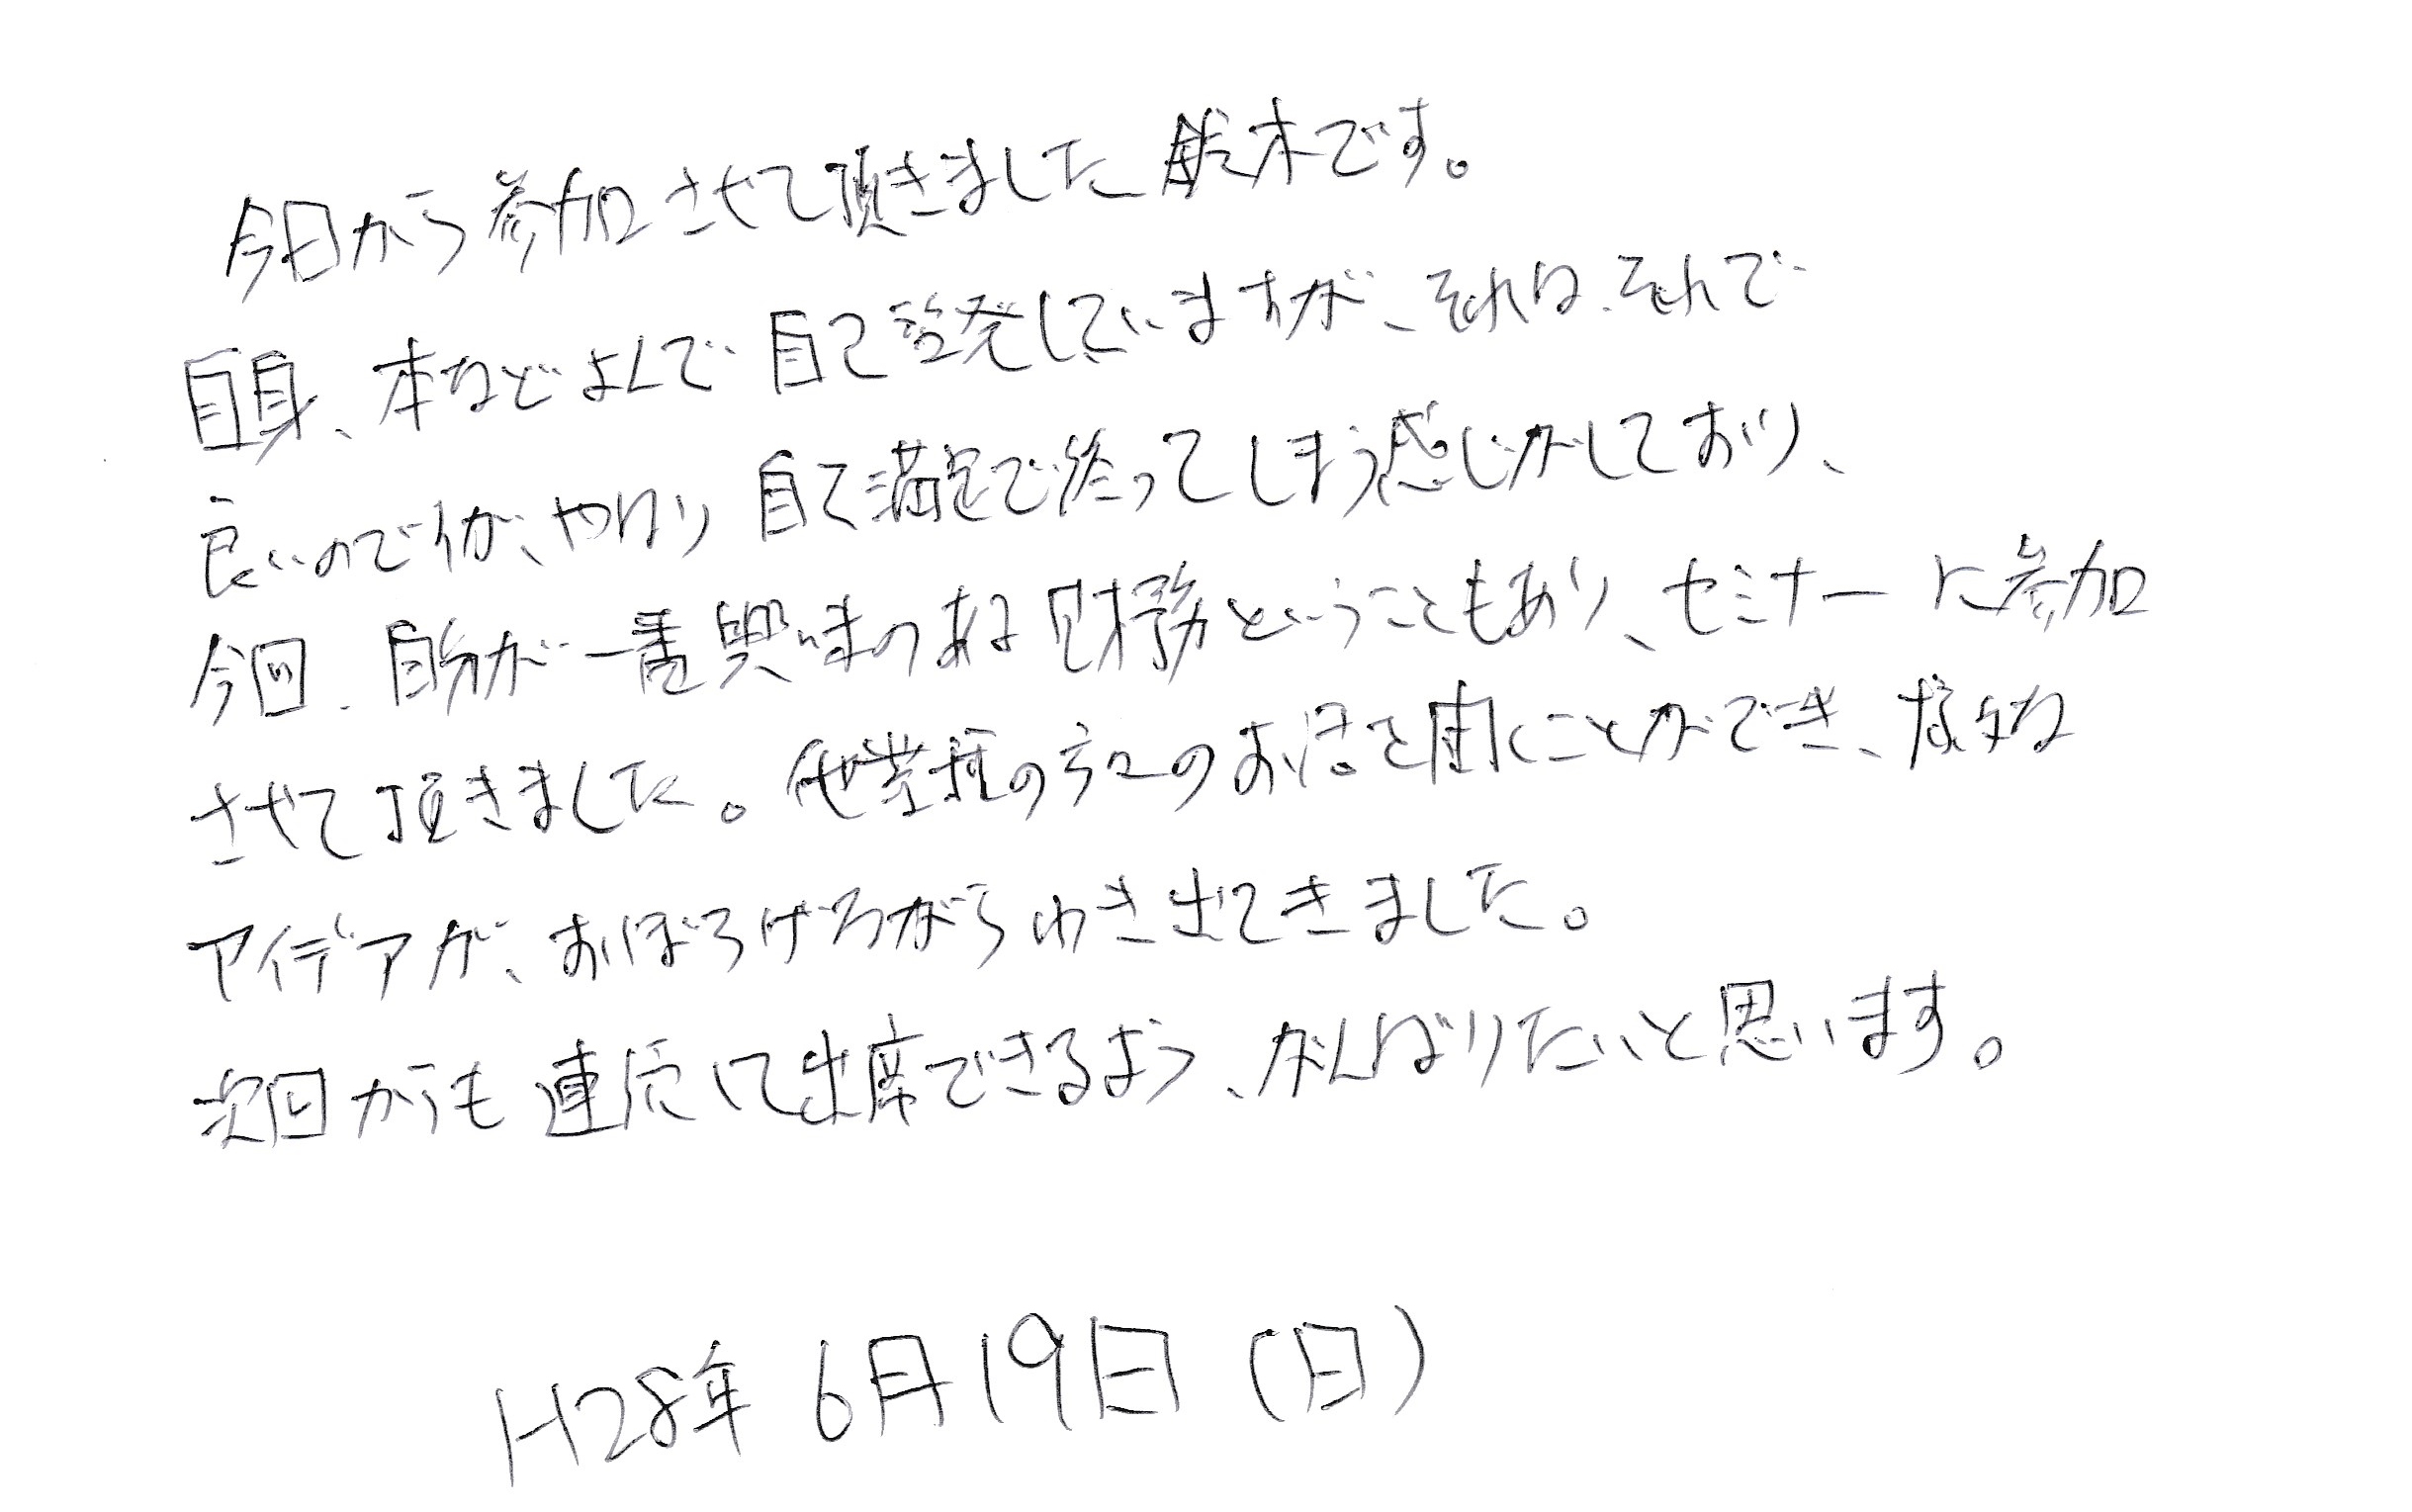 今日から参加させて頂きました鈴木です。
自身、本などよんで自己啓発していますが、それは、それで
良いのですが、やはり自己満足で終ってしまう感じがしており、
今回、自分が一番興味のある財務ということもあり、セミナーに参加
させて頂きました。他業種の方々のお話を聞くことができ、様々な
アイデアが、おぼろげながらわき出てきました。
次回からも連続して出席できるよう、がんばりたいと思います。
H28年6月19日(日)